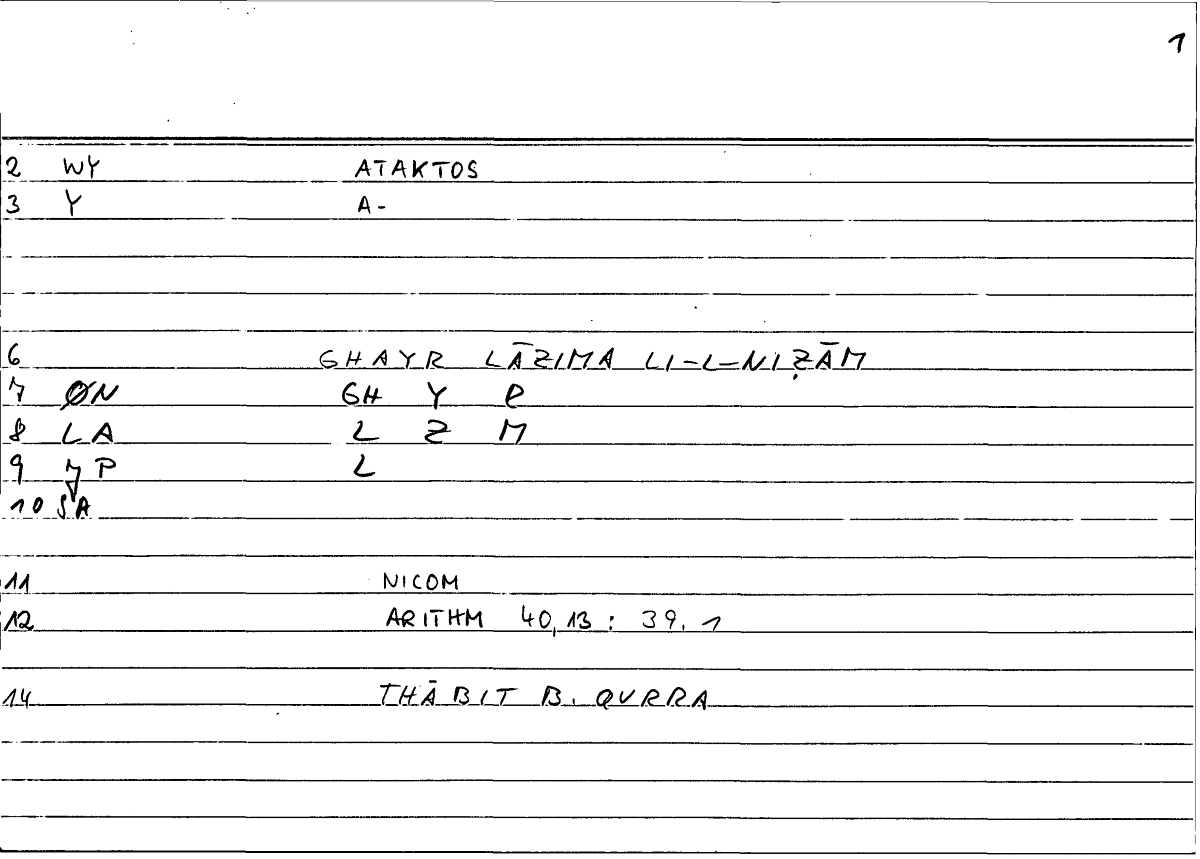 1
2 WY ATAKTOS
3 Y A-
6 GHAYR LĀZIMA LI-L-NIẒĀM
7 ØN GH Y R
8 LA L Z M
9 7P L
10 SA
11 NICOM
12 ARITHM 40,13 : 39.1
14 THĀBIT B. QURRA